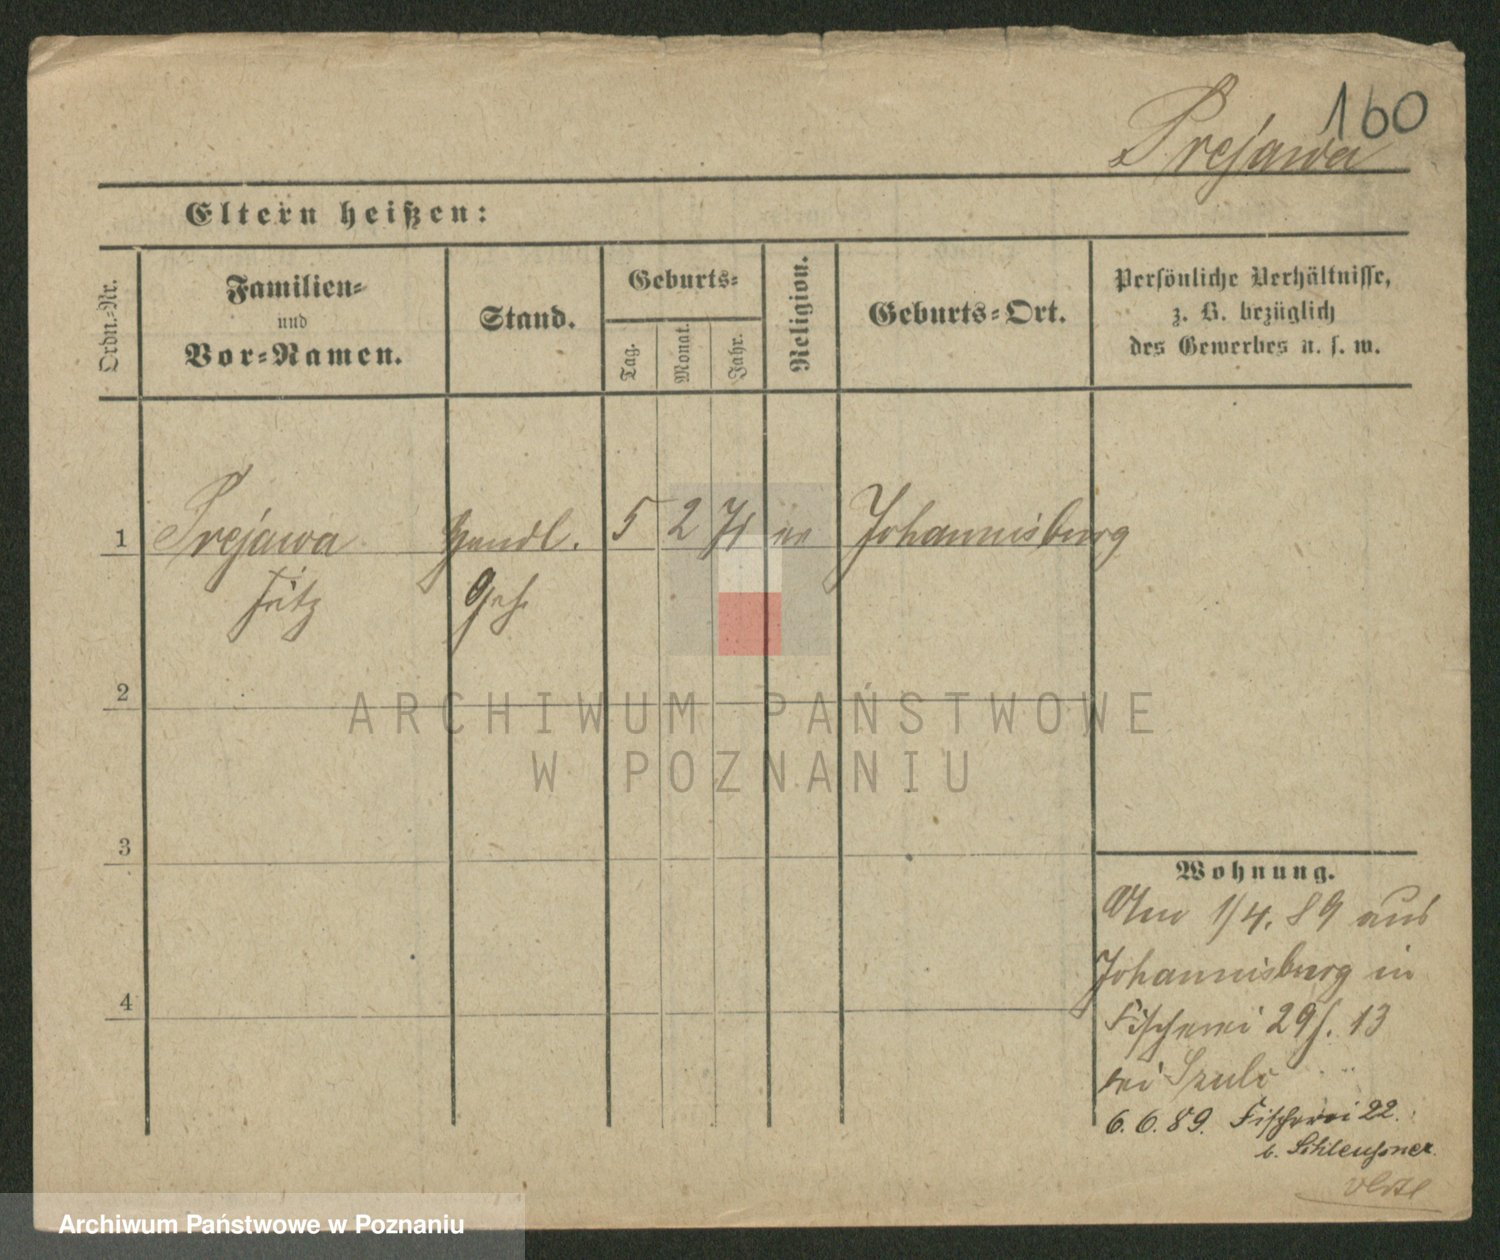 160
Prejawa
Eltern heißen:
Ordn.-Nr.
Familien- und Vor-Namen.
Stand.
Geburts-
Tag.
Monat.
Jahr.
Religion.
Geburts-Ort.
Persönliche Verhältnisse,
z. B. bezüglich
des Gewerbes u. s. w.
1 Prejawa Handl. 5 2 71 ev Johannisburg
Fritz Geh.
2
3
4
Wohnung.
Am 1/4. 89 aus
Johannisburg in
Fischerei 29/. 13
bei Szulc
6. 6. 89. Fischerei 22.
b. Schleußner.
ARCHIWUM PAŃSTWOWE
W POZNANIU
Archiwum Państwowe w Poznaniu